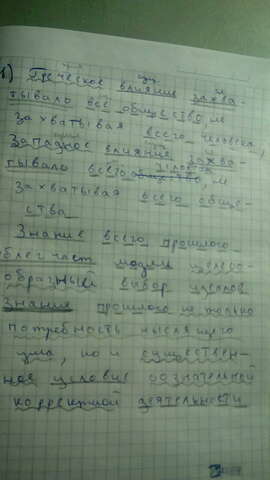 1) Греческое влияние захва-
тывало всё общество, не
захватывая всего человека,
Западное влияние захва-
тывало всего человека, не
захватывая всего обще-
ства.
Знание всего прошлого
облегчает людям целесо-
образный выбор идеалов
Знание прошлого не только
потребность мыслящего
ума, но и существен-
ное условие сознательной
корректной деятельности